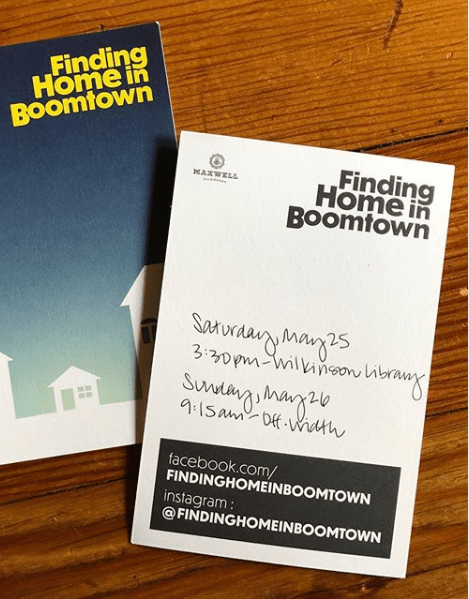 Finding
Home in
Boomtown
MAXWELL
Finding
Home in
Boomtown
Saturday, May 25
3:30pm - Wilkinson Library
Sunday, May 26
9:15am - Off. Width
facebook.com/
FINDINGHOMEINBOOMTOWN
instagram :
@FINDINGHOMEINBOOMTOWN